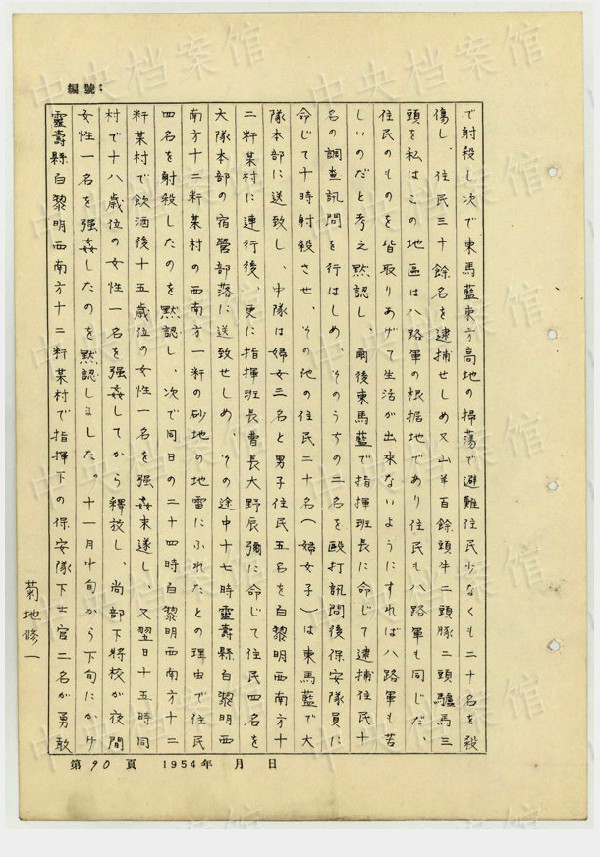 編號:
で射殺し次で東馬藍東方高地の掃蕩で避難住民少なくも二十名を殺
傷し、住民三十餘名を逮捕せしめ又山羊百餘頭牛二頭豚二頭驢馬三
頭を私はこの地區は八路軍の根据地であり住民も八路軍も同じだ、
住民のものを皆取りあげて生活が出來ないようにすれば八路軍も苦
しいのだと考え黙認し、爾後東馬藍で指揮班長に命じて逮捕住民十
名の調査訊問を行はしめ、そのうちの二名を毆打訊問後保安隊員に
命じて十時射殺させ、その他の住民二十名(婦女子)は東馬藍で大
隊本部に送致し、中隊は婦女三名と男子住民五名を白黎明西南方十
二粁某村に連行後、更に指揮班長曹長大野辰彌に命じて住民四名を
大隊本部の宿營部落に送致せしめ、その途中十七時靈壽縣白黎明西
南方十二粁某村の西南方一粁の砂地の地雷にふれたとの理由で住民
四名を射殺したのを黙認し、次で同日の二十四時白黎明西南方十二
粁某村で飲酒後十五歳位の女性一名を強姦未遂し、又翌日十五時同
村で十八歳位の女性一名を強姦してから釋放し、尚部下將校が夜間
女性一名を强姦したのを黙認しました。十一月中旬から下旬にかけ
靈壽縣白黎明西南方十二粁某村で指揮下の保安隊下士官二名が勇敢
菊地修一
第90頁 1954年 月 日
中央档案馆